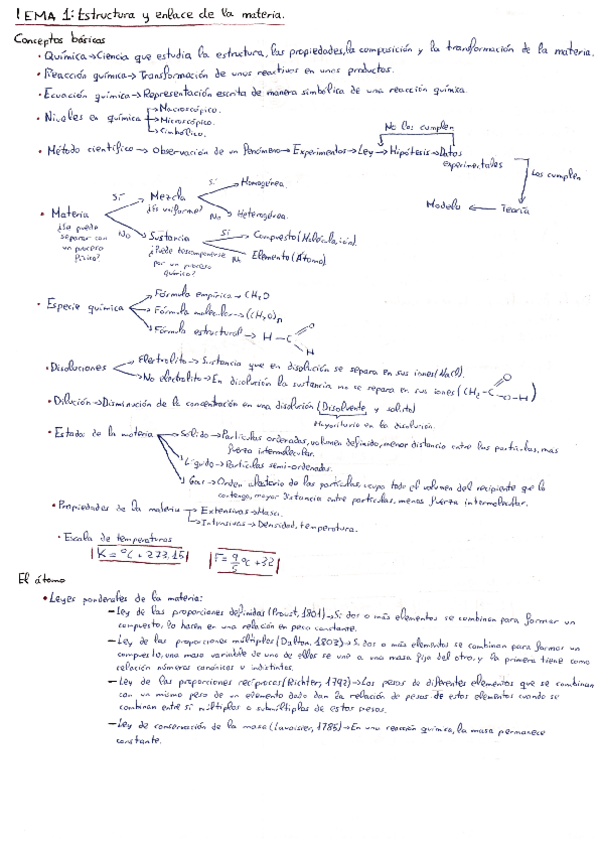 TEMA 1: Estructura y enlace de la materia.
Conceptos básicos
• Química → Ciencia que estudia la estructura, las propiedades, la composición y la transformación de la materia.
• Reacción química → Transformación de unos reactivos en unos productos.
• Ecuación química → Representación escrita de manera simbólica de una reacción química.
• Niveles en química → Macroscópico.
→ Microscópico.
→ Simbólico.
No los cumplen
• Método científico → Observación de un fenómeno → Experimentos → Ley → Hipótesis → Datos
experimentales
Los cumplen
Modelo ← Teoría
• Materia
¿Se puede
separar con
un proceso
físico?
Sí
Mezcla
¿Es uniforme?
Sí → Homogénea.
No → Heterogénea.
No
Sustancia
¿Puede descomponerse
por un proceso
químico?
Sí
Compuesto (Molécula, ion).
No
Elemento (Átomo)
• Especie química
→ Fórmula empírica → CH₂O
→ Fórmula molecular → (CH₂O)n
→ Fórmula estructural → H - C
O
H
• Disoluciones
→ Electrolito → Sustancia que en disolución se separa en sus iones (NaCl).
→ No electrolito → En disolución la sustancia no se separa en sus iones (CH₃-C
O
O-H)
• Dilución → Disminución de la concentración en una disolución (Disolvente y soluto)
Mayoritario en la disolución.
• Estados de la materia
→ Sólido → Partículas ordenadas, volumen definido, menor distancia entre las partículas, mas
fuerza intermolecular.
→ Líquido → Partículas semi-ordenadas.
→ Gas → Orden aleatorio de las partículas, ocupa todo el volumen del recipiente que lo
contenga, mayor distancia entre partículas, menos fuerza intermolecular.
• Propiedades de la materia → Extensivas → Masa.
→ Intensivas → Densidad, temperatura.
• Escala de temperaturas
K = ºC + 273,15
F = 9/5 ºC + 32
El átomo
• Leyes ponderales de la materia:
— Ley de las proporciones definidas (Proust, 1801) → Si dos o más elementos se combinan para formar un
compuesto, lo hacen en una relación en peso constante.
— Ley de las proporciones múltiples (Dalton, 1803) → Si dos o más elementos se combinan para formar un
compuesto, una masa variable de uno de ellos se une a una masa fija del otro, y la primera tiene como
relación números canónicos e indistintos.
— Ley de las proporciones recíprocas (Richter, 1792) → Los pesos de diferentes elementos que se combinan
con un mismo peso de un elemento dado dan la relación de pesos de estos elementos cuando se
combinan entre sí múltiplos o submúltiplos de estos pesos.
— Ley de conservación de la masa (Lavoisier, 1785) → En una reacción química, la masa permanece
constante.